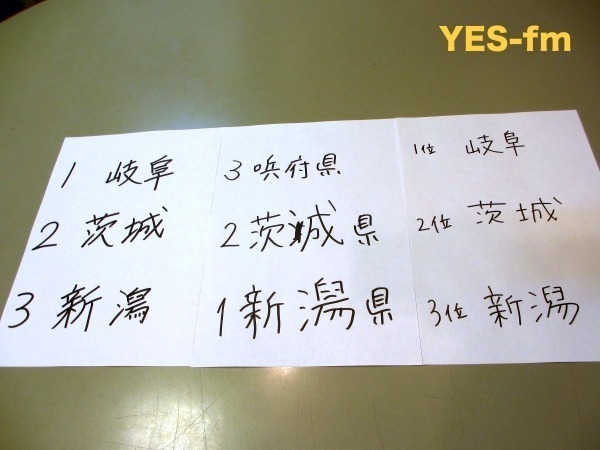 YES-fm
1 岐阜
2 茨城
3 新潟
3 呠府県
2 茨城県
1 新潟県
1位 岐阜
2位 茨城
3位 新潟